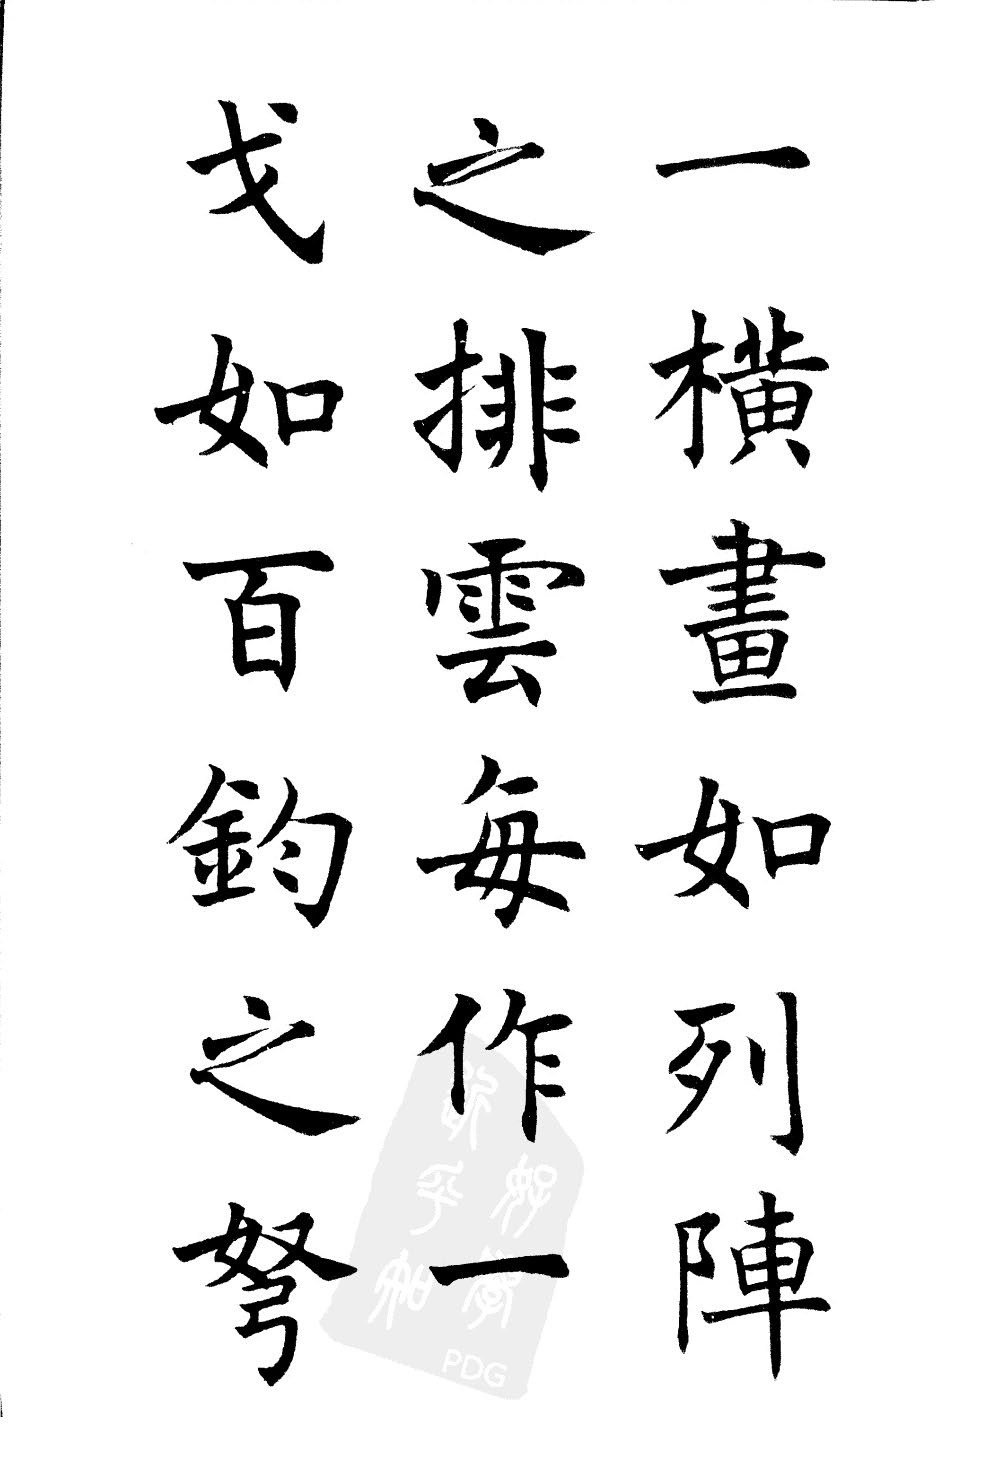 一橫畫如列陣
之排雲每作一
戈如百鈞之弩
PDG